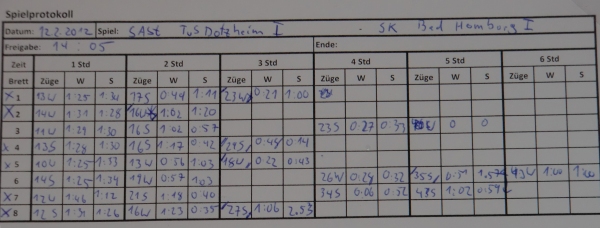 Spielprotokoll
Datum: 12.2.2012 Spiel: SASt TuS Dotzheim I - SK Bad Homburg I
Freigabe: 14:05 Ende:
Zeit 1 Std 2 Std 3 Std 4 Std 5 Std 6 Std
Brett Züge W S Züge W S Züge W S Züge W S Züge W S Züge W S
X 1 13W 1:25 1:34 17S 0:44 1:11 23W 0:21 1:00
X 2 14W 1:31 1:28 1:02 1:20
3 11W 1:29 1:30 16S 1:02 0:57 23S 0:27 0:33 0 0
x 4 13S 1:28 1:30 16S 1:17 0:42 29S 0:45 0:14
x 5 10W 1:25 1:33 13W 0:56 1:03 18W 0:22 0:43
6 14S 1:25 1:34 19W 0:57 1:03 26W 0:29 0:32 35S 0:51 43W
X 7 12W 1:46 1:12 21S 1:18 0:40 34S 0:06 0:52 48S 1:02 0:59
X 8 12S 1:31 1:26 16W 1:23 0:35 27S 1:06 2:53